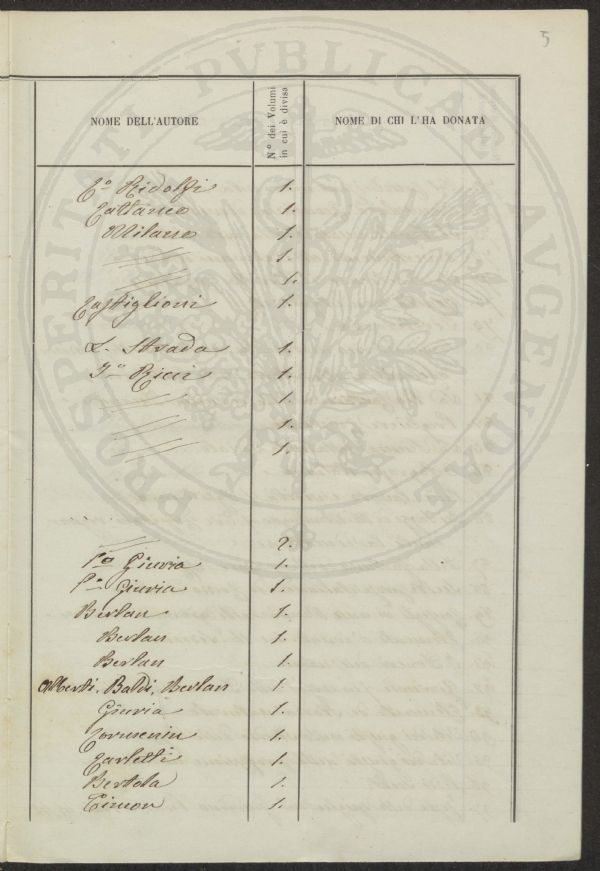 5
NOME DELL'AUTORE
N° dei Volumi
in cui è divisa
NOME DI CHI L'HA DONATA
C.o Ridolfi 1.
Cattaneo 1.
Milano 1.
1.
1.
Castiglioni 1.
L. Strada 1.
Ricci 1.
1.
1.
1.
2.
Giuria 1.
Giuria 1.
Berlan 1.
Berlan 1.
Berlan 1.
Alberti, Baldi, Berlan 1.
Giuria 1.
1.
Carletti 1.
Bertola 1.
Cimon 1.
PROSPERITATI PVBLICAE AVGENDAE